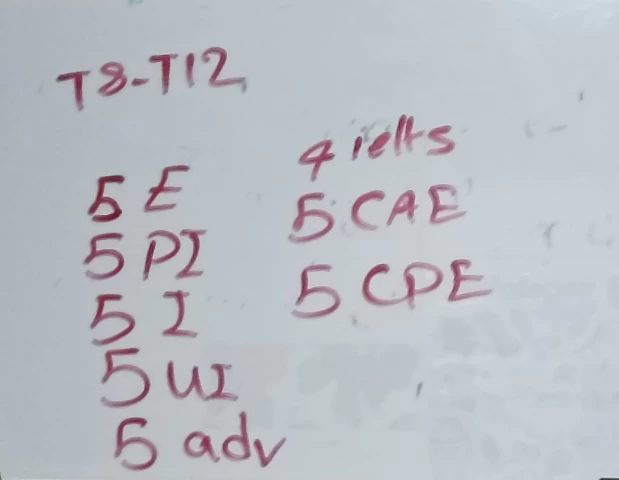 T8-T12
5 E
5 PI
5 I
5 UI
5 adv
4 ielts
5 CAE
5 CPE